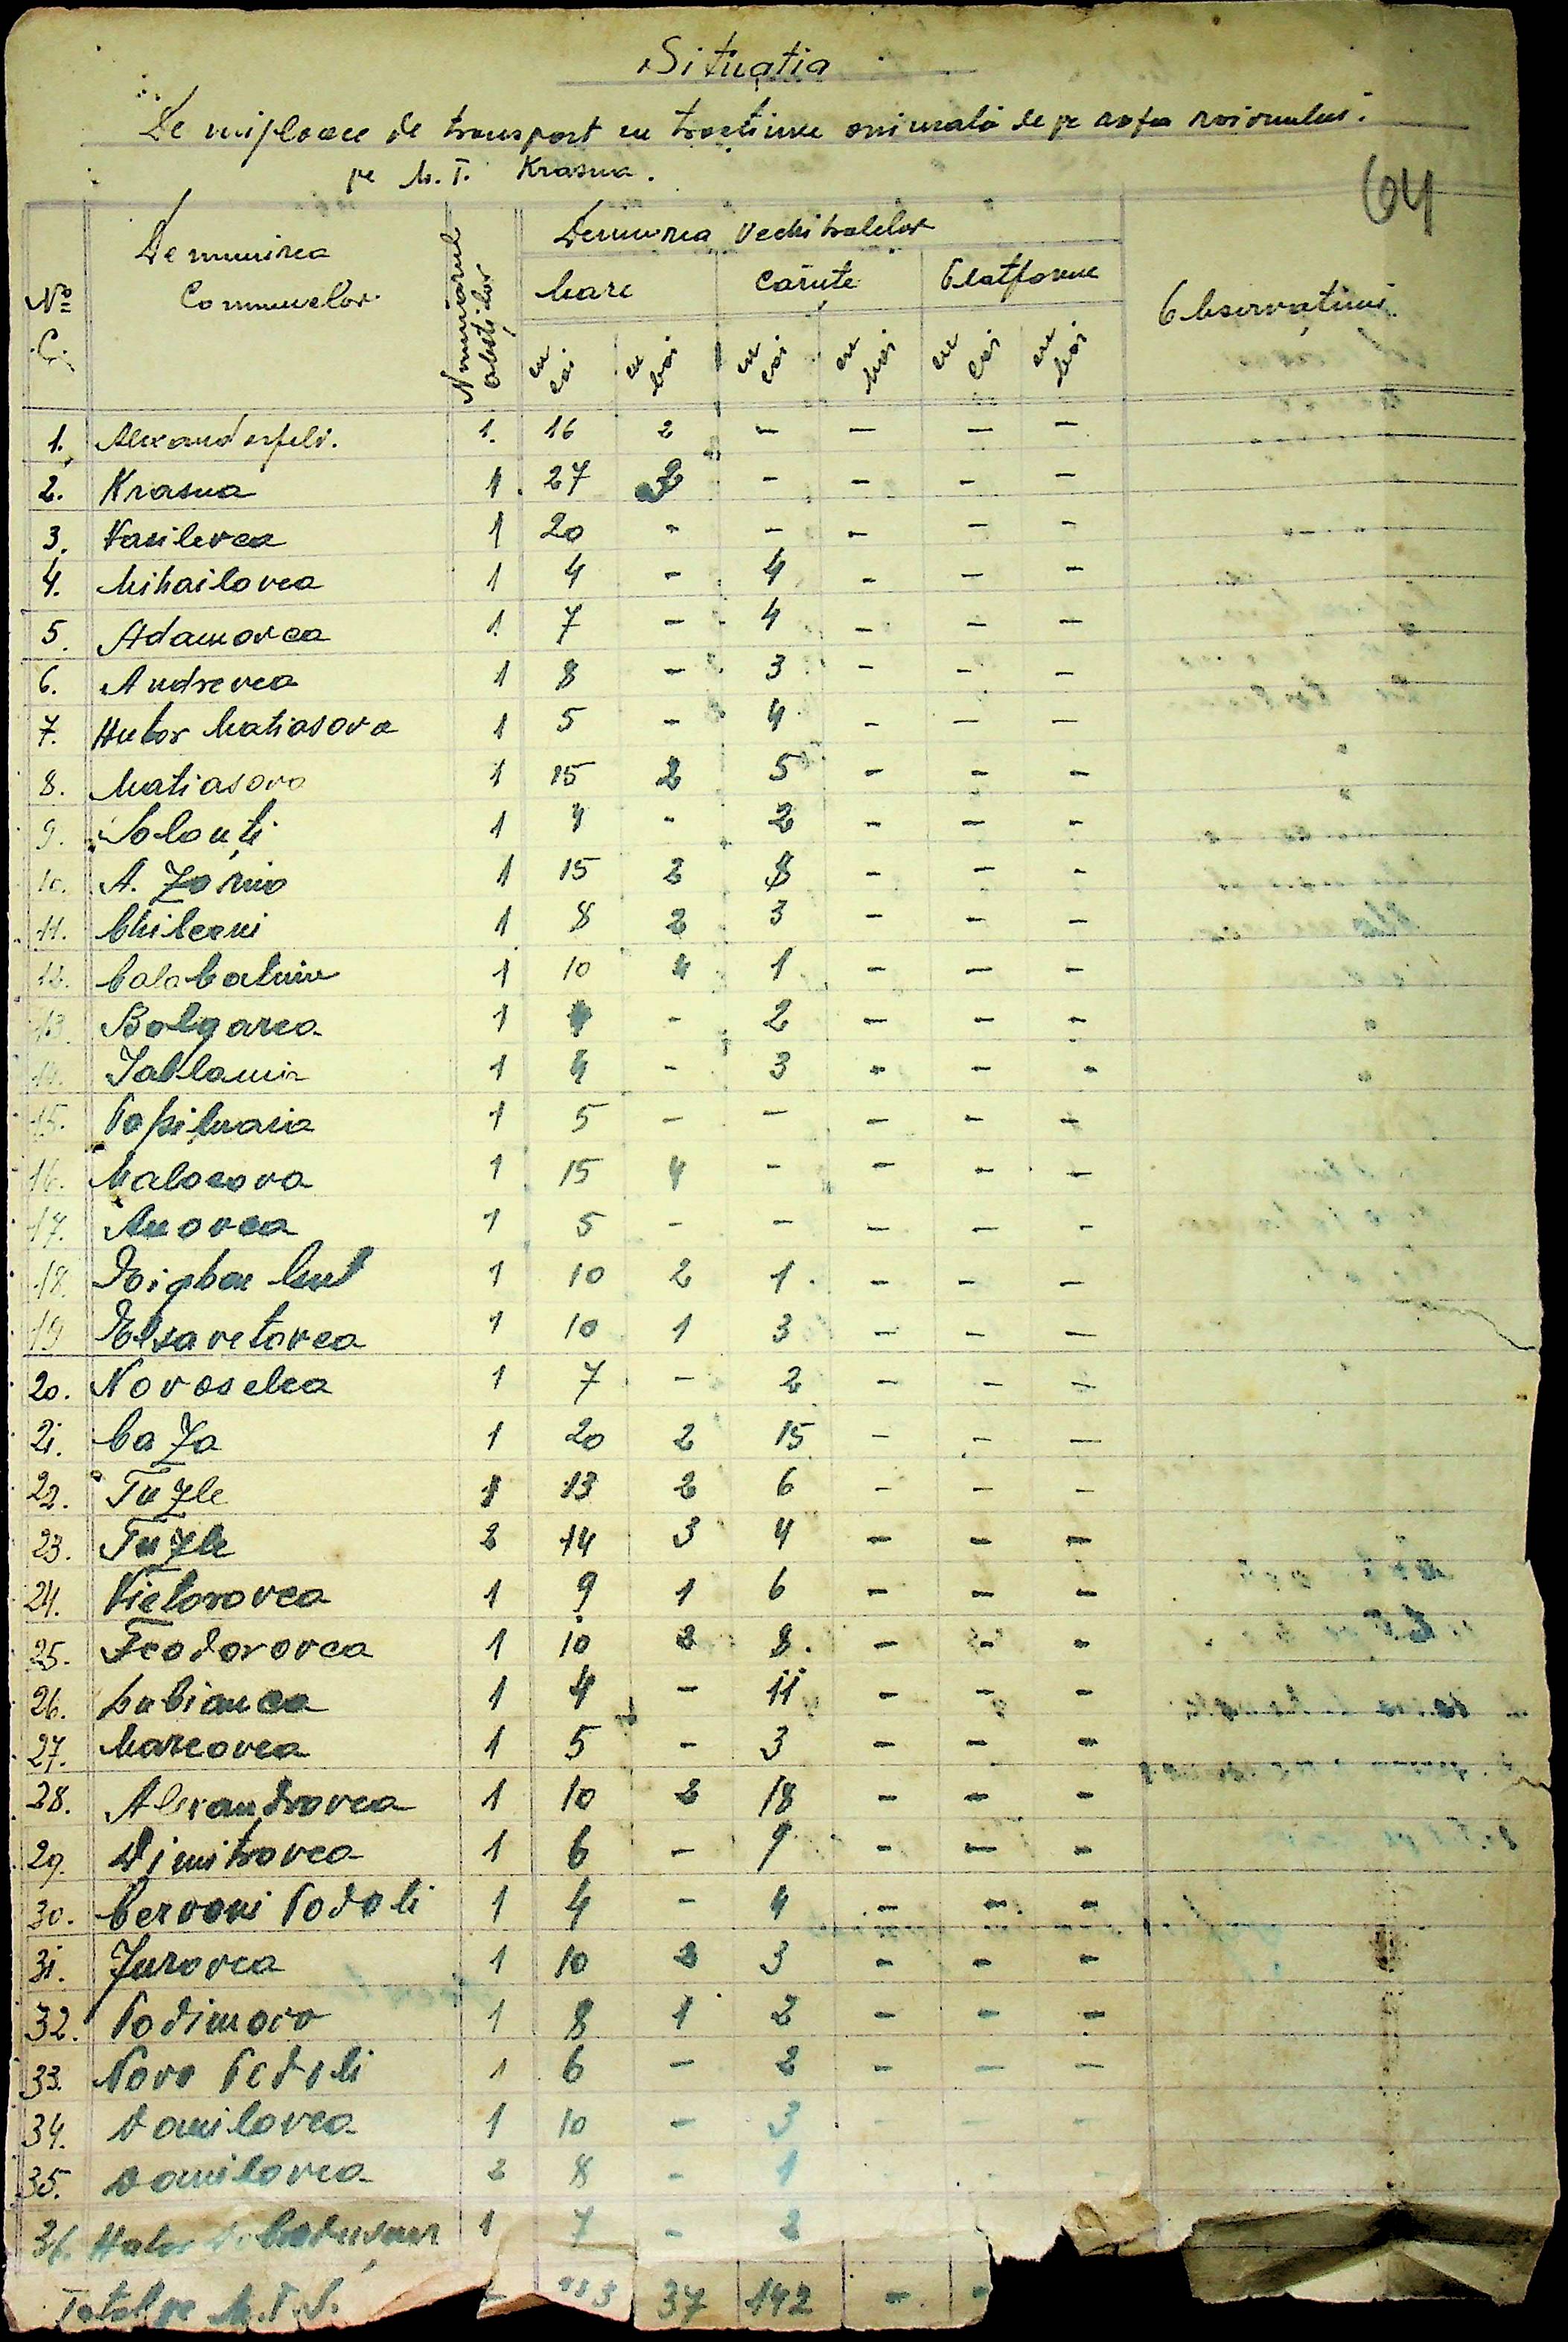 Situația
De mijloace de transport cu tracțiune animală de pe raza raionului.
pe M. T. Krasna.
64
Nº C.
Denumirea Comunelor
Numărul obștilor
Denumirea Vechiculelor
Observațiuni
Mare
Căruțe
Platforme
cu cai
cu boi
cu cai
cu boi
cu cai
cu boi
1. Alexanderfeld. 1. 16 2 – – – –
2. Krasna 1 27 2 – – – –
3. Vasilevca 1 20 - – – – –
4. Mihailovca 1 4 – 4 – – –
5. Adamovca 1 7 – 4 – – –
6. Andrevca 1 8 – 3 – – –
7. Hutor Matiasova 1 5 – 4 – – –
8. Matiasova 1 15 2 5 – – –
9. Solonți 1 4 - 2 – – –
10. A. Zornio 1 15 2 8 – – –
11. Chileeni 1 8 2 3 – – –
12. Calabatnin 1 10 4 1 – – –
13. Bolgarca 1 4 – 2 – – –
14. Iablania 1 4 – 3 - – -
15. 1 5 – – – – –
16. Malocova 1 15 4 – – – –
17. Anovca 1 5 – – – – –
18. 1 10 2 1 – – –
19 Elsavetovca 1 10 1 3 – – –
20. Novoselca 1 7 – 2 – – –
21. CaZa 1 20 2 15 – – –
22. Tuzle 1 13 2 6 – – –
23. Tuzle 2 14 3 4 – – –
24. Victorovca 1 9 1 6 – – –
25. Feodorovca 1 10 2 8. – – –
26. Lubianca 1 4 – 11 – – –
27. Marcovca 1 5 – 3 – – –
28. Alexandrovca 1 10 2 18 – – –
29. Dimitrovca 1 6 – 9 – – –
30. Cervoni Podoli 1 4 – 4 – – –
31. Jurovca 1 10 2 3 – – –
32. Podimovo 1 8 1 2 – – –
33. Novo Podoli 1 6 – 2 – – –
34. Danilovca 1 10 – 3 – – –
35. Danilovca 2 8 - 1 - -
36. Hutor 1 7 – 2
Total pe M.T.S. – 37 142 – -